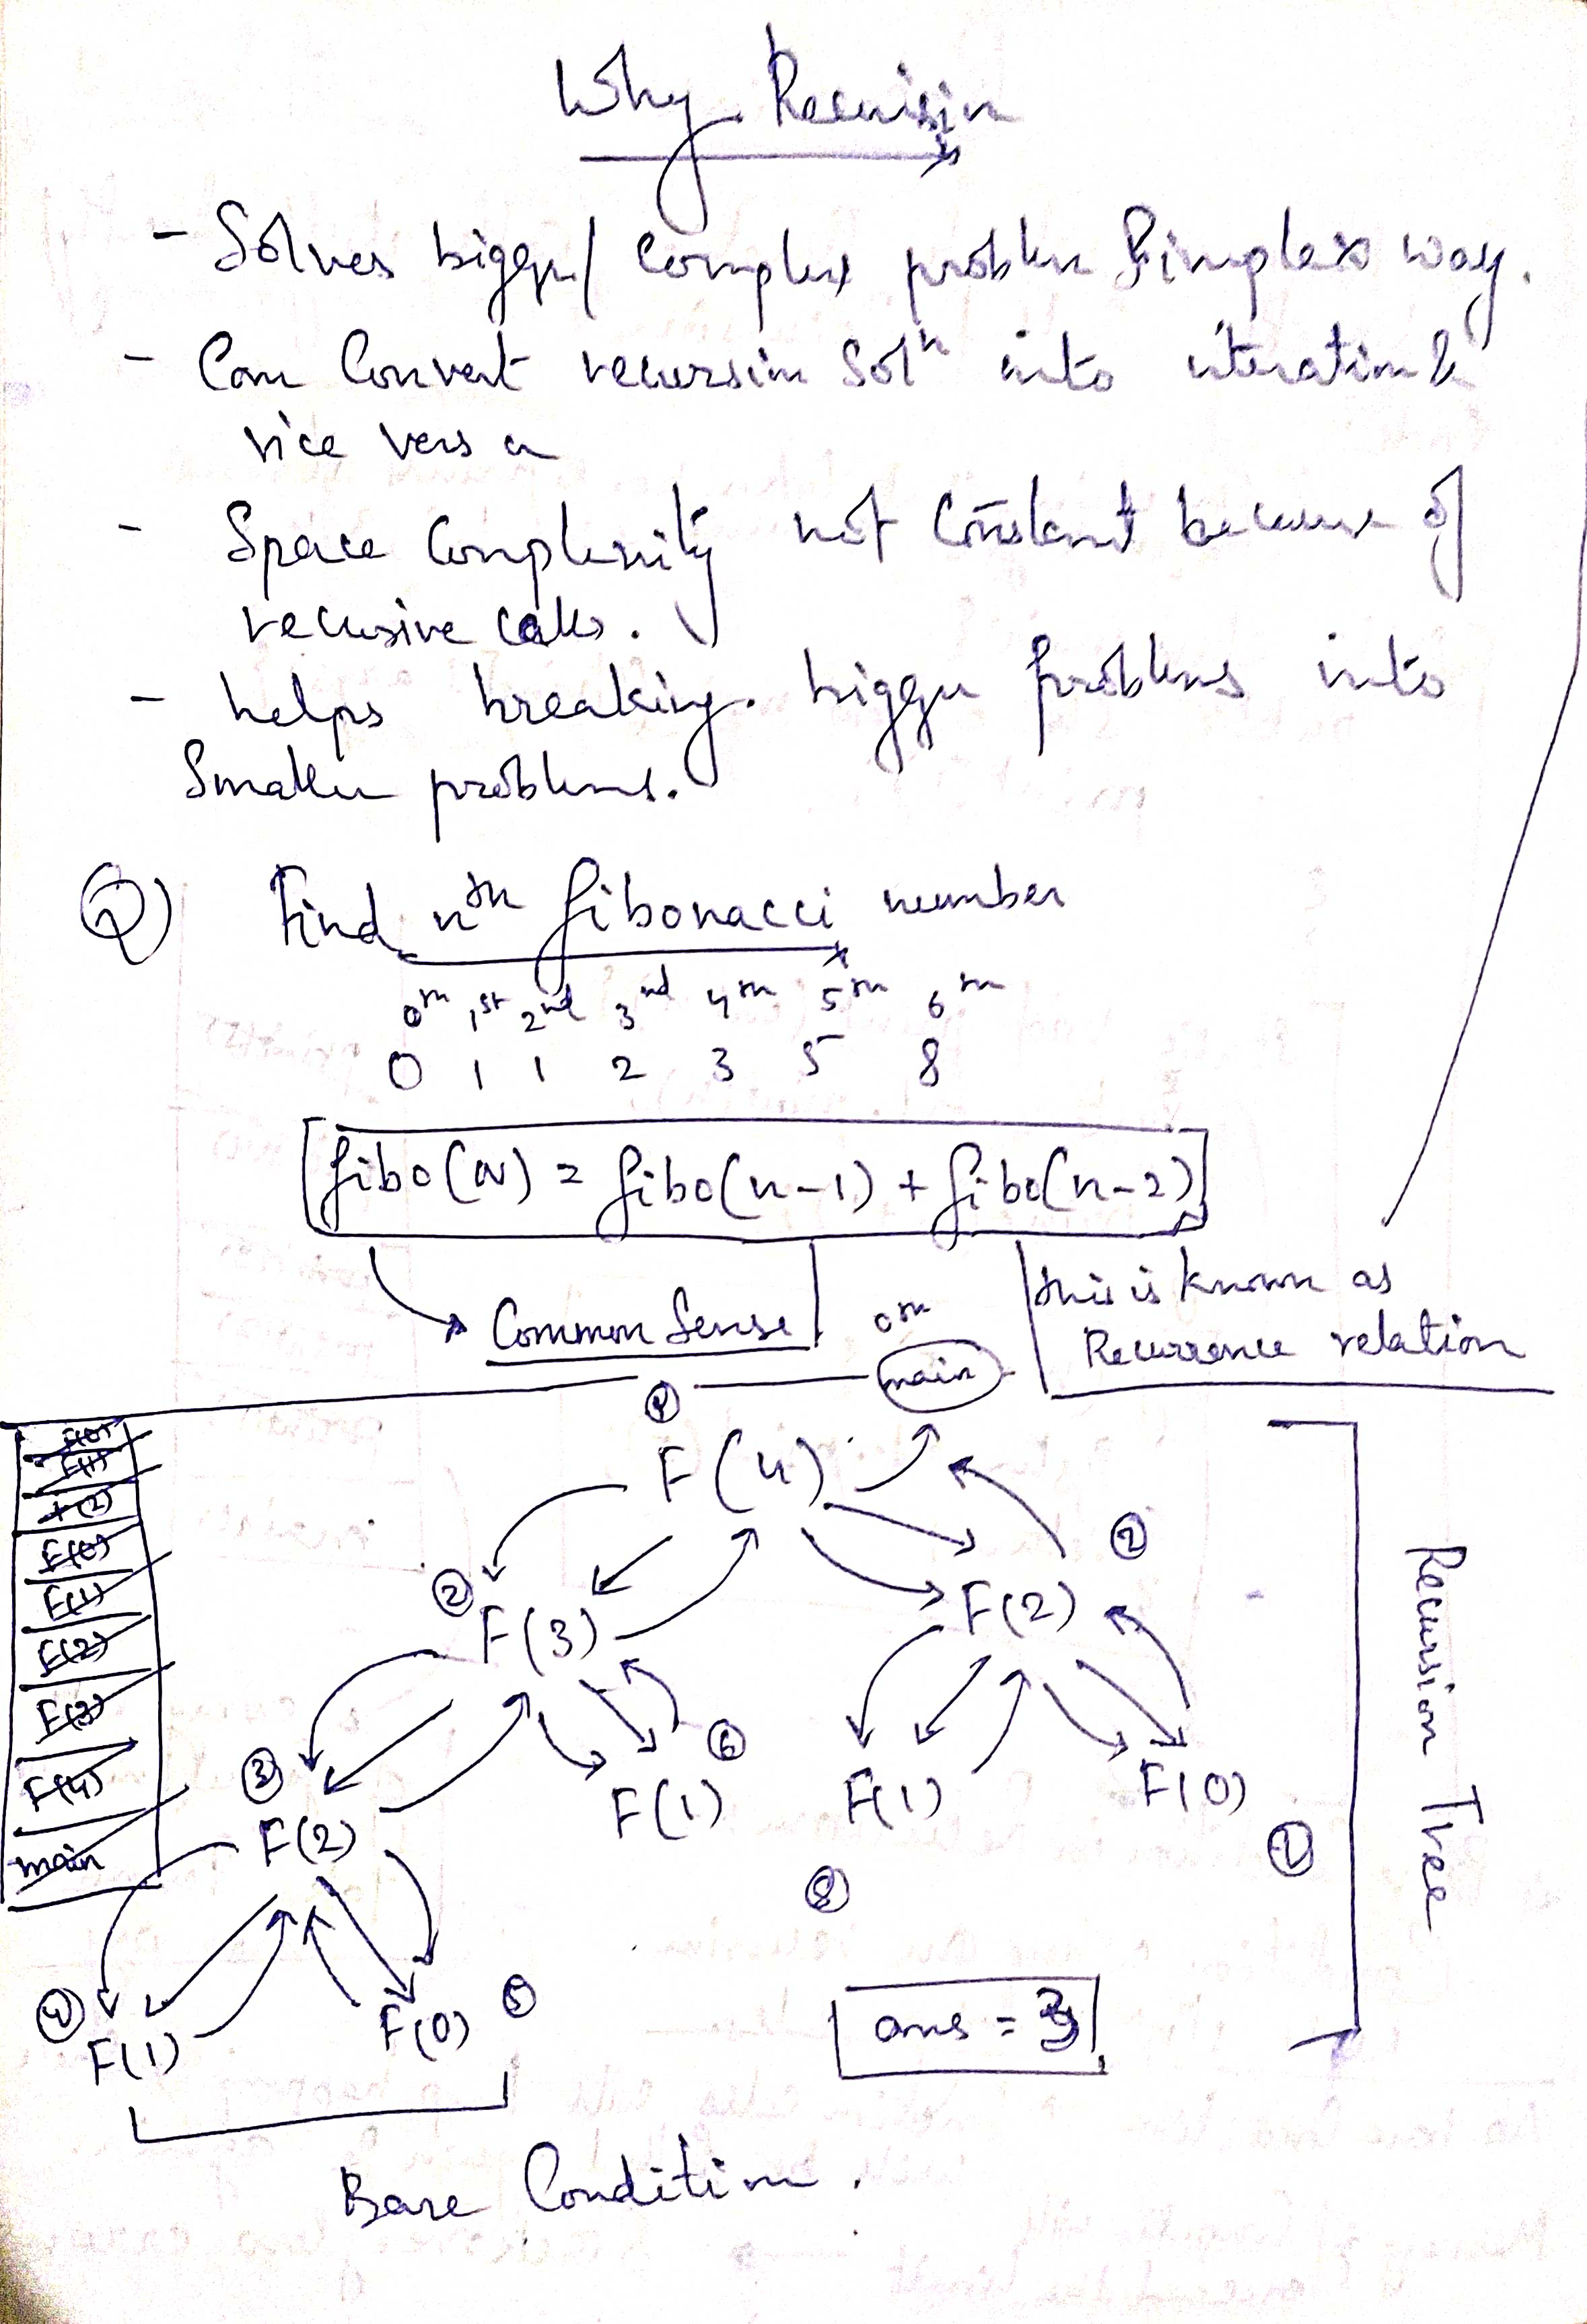 Why Recursion
- Solves bigger/ Complex problem Simplex way.
- Can Convert recursion Solⁿ into iteration &
vice versa
- Space Complexity not Constant because of
recusive calls.
- helps breaking. bigger problems into
Smaller problems.
Q) Find nth fibonacci number
0th 1st 2nd 3nd 4th 5th 6th
0 1 1 2 3 5 8
fibo(N) = fibo(n-1) + fibo(n-2)
Common Sense
this is known as
Recurrence relation
0th
main
①
F(4)
②
F(3)
F(2)
③
F(2)
⑥
F(1)
F(1)
F(0)
⑧
④
F(1)
F(0)
⑤
F(0)
F(1)
F(2)
F(0)
F(1)
F(2)
F(3)
F(4)
main
Recursion Tree
ans = 3
Base Condition.